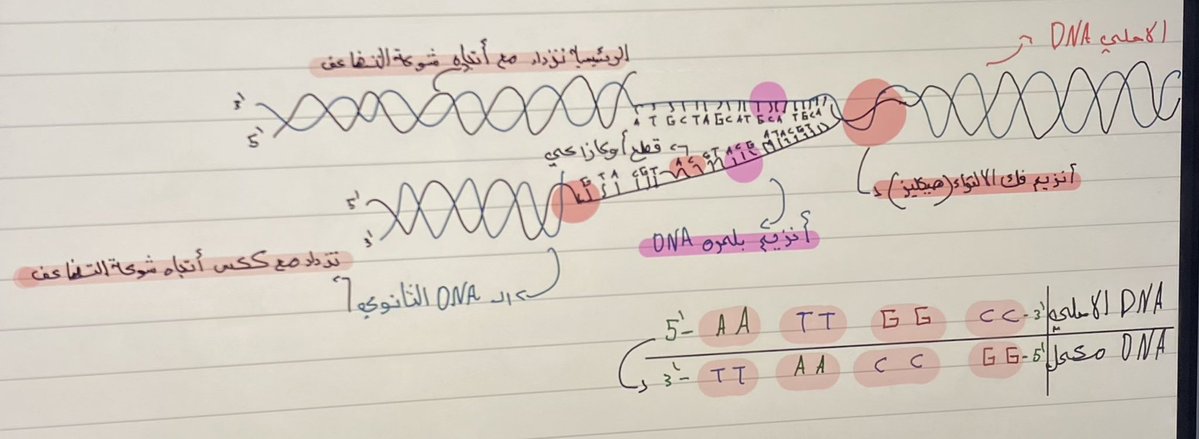 DNA الاصلي
الرئيسية تزداد مع أتجاه شوكة التضاعف
3'
5'
A T G C T A G C A T G C A T G C A
قطع أوكازاكي
أنزيم فك الالتواء (هيكليز)
5'
3'
أنزيم بلمرة DNA
تزداد مع عكس أتجاه شوكة التضاعف
DNA الثانوي
5'- AA TT GG CC -3' DNA الاصلي
3'- TT AA CC GG -5' DNA مكمل